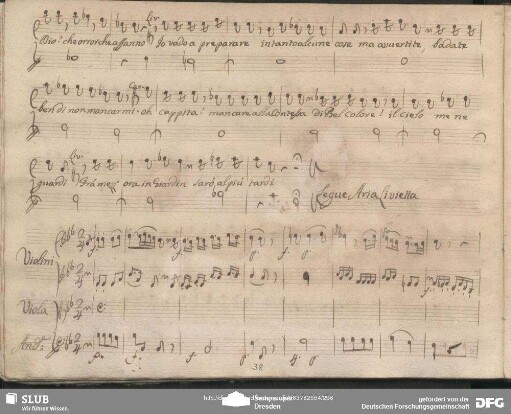 Liv.
Dio! che orror che affanno Io vado a preparare intanto alcune cose ma avvertite, badate
ben di non mancarmi. oh cappita! mancare alla Contessa di Bel colore! il cielo me ne
guardi frà mezz' ora in Giardin sarò al più tardi
Segue Aria Livietta
Violini
Viola
And.te
38
SLUB
Wir führen Wissen.
Dresden
gefördert von der
Deutschen Forschungsgemeinschaft
DFG